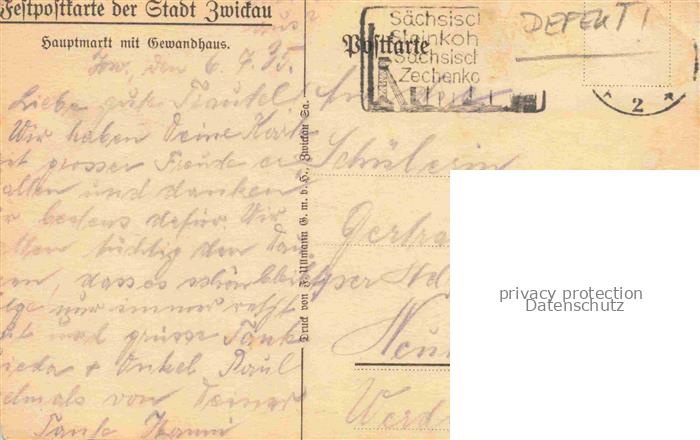 Festpostkarte der Stadt Zwickau
Hauptmarkt mit Gewandhaus.
Postkarte
Sächsisch
Steinkoh
Sächsisch
Zechenko
DEFEKT!
2
Zw, den 6. 7. 35.
Liebe gute Trautel!
Wir haben Deine Kart
grosser Freude er
alten und danken
bestens dafür. Wir
tüchtig den
dass es schön
nur immer recht
und grüsse Tank
ieda + Onkel Paul
mals von Deiner
Tante Hanni
Druck von F. Ullmann G. m. b. H., Zwickau Sa.
Schülerin
Gertra
Neu
Werd
privacy protection
Datenschutz